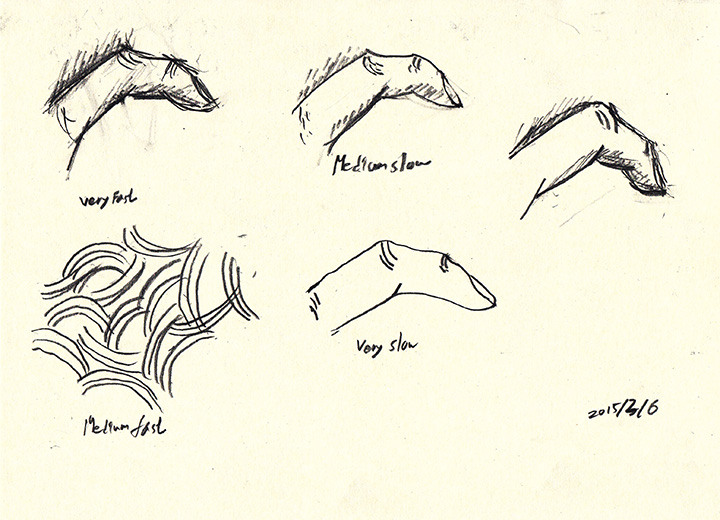 very fast
Medium slow
Medium fast
Very slow
2015/3/6